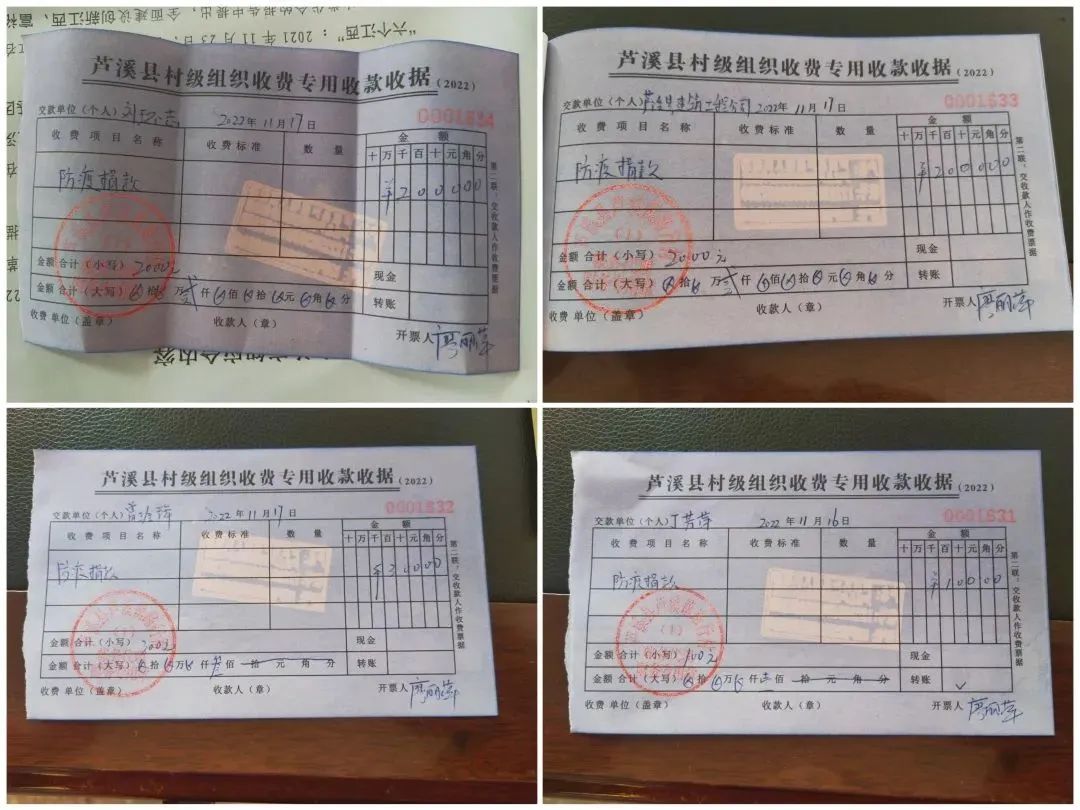 “六个江西”：2021年11月23日，
面建设创新江西、富裕
芦溪县村级组织收费专用收款收据(2022)
交款单位(个人) 2022年11月17日 0001634
收费项目名称 收费标准 数量 金额
十万千百十元角分
防疫捐款 ¥200000
金额合计(小写)2000元 现金
金额合计(大写)⊗拾⊗万贰仟⊗佰⊗拾⊗元⊗角⊗分 转账
收费单位(盖章) 收款人(章) 开票人 廖丽萍
第二联：交收款人作收费票据
芦溪县村级组织收费专用收款收据(2022)
交款单位(个人) 建筑工程公司 2022年11月17日 0001633
收费项目名称 收费标准 数量 金额
十万千百十元角分
防疫捐款 ¥200000
金额合计(小写)2000元 现金
金额合计(大写)⊗拾⊗万贰仟⊗佰⊗拾⊗元⊗角⊗分 转账
收费单位(盖章) 收款人(章) 开票人 廖丽萍
第二联：交收款人作收费票据
芦溪县村级组织收费专用收款收据(2022)
交款单位(个人) 2022年11月17日 0001632
收费项目名称 收费标准 数量 金额
十万千百十元角分
防疫捐款
金额合计(小写) 现金
金额合计(大写)⊗拾⊗万⊗仟 佰拾元角分 转账
收费单位(盖章) 收款人(章) 开票人 廖丽萍
第二联：交收款人作收费票据
芦溪县村级组织收费专用收款收据(2022)
交款单位(个人)丁芳萍 2022年11月16日 0001631
收费项目名称 收费标准 数量 金额
十万千百十元角分
防疫捐款 ¥10000
金额合计(小写)100元 现金
金额合计(大写)⊗拾⊗万⊗仟壹佰拾元角分 转账 ✓
收费单位(盖章) 收款人(章) 开票人 廖丽萍
第二联：交收款人作收费票据